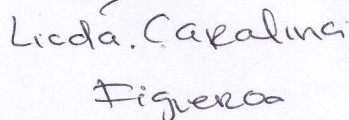 Licda. Carolina
Figueroa